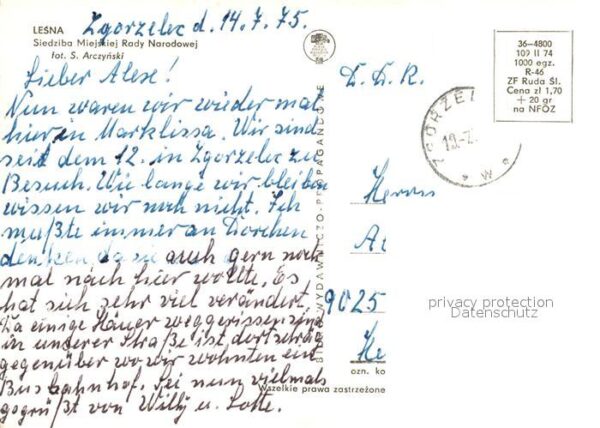 LEŚNA
Siedziba Miejskiej Rady Narodowej
fot. S. Arczyński
Zgorzelec d. 14.7.75.
Lieber Alese!
Nun waren wir wieder mal
hier in Marklissa. Wir sind
seit dem 12. in Zgorzelec zu
Besuch. Wie lange wir bleiben
wissen wir noch nicht. Ich
mußte immer an Dorchen
denken da sie auch gern noch
mal nach hier wollte. Es
hat sich sehr viel verändert.
Da einige Häuser weggerissen sind
in unserer Straße ist dort schräg
gegenüber wo wir wohnten ein
Busbahnhof. Sei nun vielmals
gegrüßt von Willy u. Lotte.
WYDAWNICZO-PROPAGANDOWE
36-4800
109 II 74
1000 egz.
R-46
ZF Ruda Śl.
Cena zł 1,70
+ 20 gr
na NFOZ
D. D. R.
Herrn
9025
ozn. ko
Wszelkie prawa zastrzeżone
privacy protection
Datenschutz